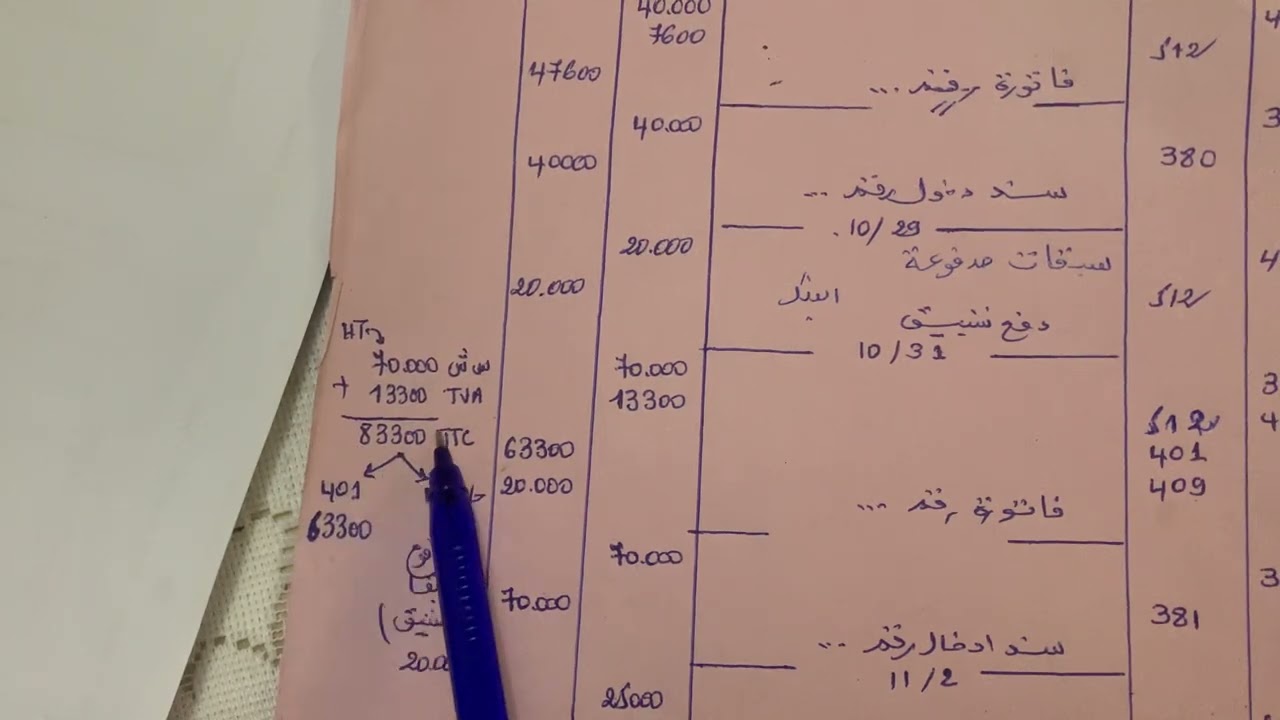 40.000
7600
512
47600
فاتورة رقم ...
40.000
380
40000
سند دخول رقم ...
10/29
20.000
سبقات مدفوعة
512
20.000
دفع شيك
10/31
HT
70.000 س ش
70.000
+ 13300 TVA
13300
83300 TTC
512
63300
401
401
20.000
409
63300
فاتورة رقم ...
70.000
381
70.000
سند ادخال رقم ...
11/2
25000